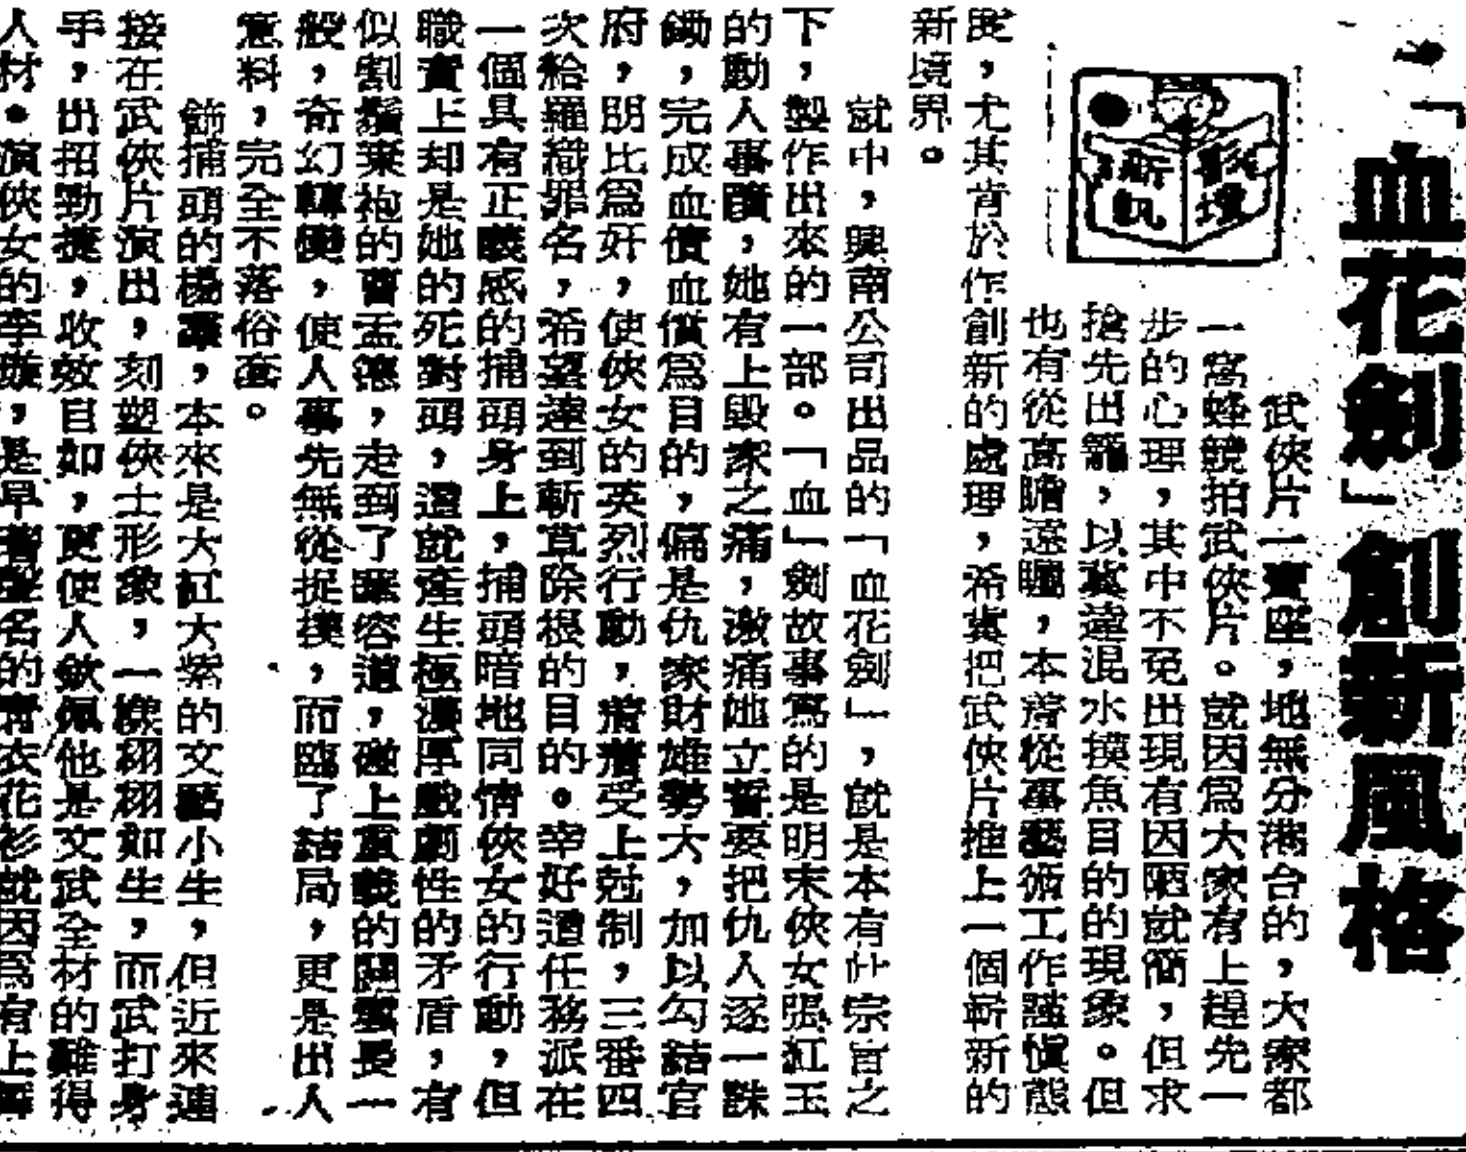 「血花劍」創新風格
影壇
新帆
武俠片一賣座，地無分港台的，大家都
一窩蜂競拍武俠片。就因為大家有上趕先一
步的心理，其中不免出現有因陋就簡，但求
搶先出籠，以冀達混水摸魚目的的現象。但
也有從高瞻遠矚，本着從事藝術工作謹慎態
度，尤其肯於作創新的處理，希冀把武俠片推上一個嶄新的
新境界。
就中，興南公司出品的「血花劍」，就是本有此宗旨之
下，製作出來的一部。「血」劍故事寫的是明末俠女張紅玉
的動人事蹟，她有上毀家之痛，激痛她立誓要把仇人逐一誅
鋤，完成血債血償為目的，偏是仇家財雄勢大，加以勾結官
府，朋比為奸，使俠女的英烈行動，着着受上尅制，三番四
次給羅織罪名，希望達到斬草除根的目的。幸好遭任務派在
一個具有正義感的捕頭身上，捕頭暗地同情俠女的行動，但
職責上却是她的死對頭，這就產生極濃厚戲劇性的矛盾，有
似割鬚棄袍的曹孟德，走到了華容道，碰上重義的關雲長一
般，奇幻轉變，使人事先無從捉摸，而臨了結局，更是出人
意料，完全不落俗套。
飾捕頭的楊羣，本來是大紅大紫的文藝小生，但近來連
接在武俠片演出，刻塑俠士形象，一樣栩栩如生，而武打身
手，出招勁捷，收效自如，更使人歛佩他是文武全材的難得
人材。演俠女的李璇，是早著聲名的青衣花衫就因為有上舞